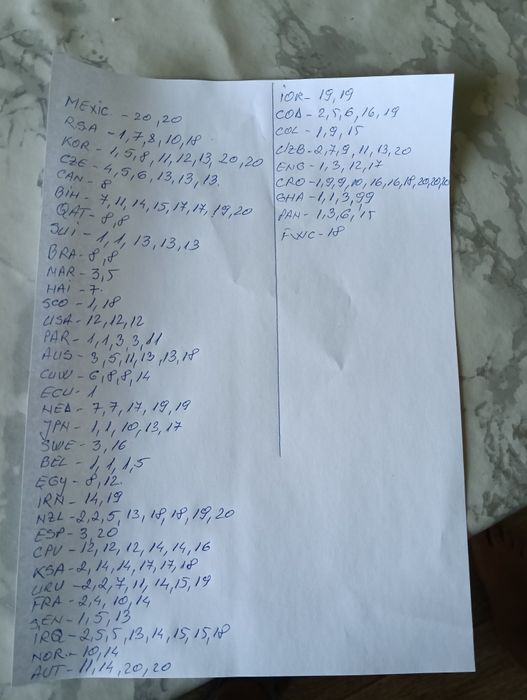 MEXIC. - 20, 20
RSA - 1, 7, 8, 10, 18
KOR - 1, 5, 8, 11, 12, 13, 20, 20
CZE - 4, 5, 6, 13, 13, 13
CAN - 8
BIH - 7, 11, 14, 15, 17, 17, 19, 20
QAT - 8, 8
SUI - 1, 1, 13, 13, 13
BRA - 8, 8
MAR - 3, 5
HAI - 7
SCO - 1, 18
USA - 12, 12, 12
PAR - 1, 1, 3, 3, 11
AUS - 3, 5, 11, 13, 13, 18
CUW - 6, 8, 8, 14
ECU - 1
NED - 7, 7, 17, 19, 19
JPN - 1, 1, 10, 13, 17
SWE - 3, 16
BEL - 1, 1, 1, 5
EGY - 8, 12
IRN - 14, 19
NZL - 2, 2, 5, 13, 18, 18, 19, 20
ESP - 3, 20
CPV - 12, 12, 12, 14, 14, 16
KSA - 2, 14, 14, 17, 17, 18
URU - 2, 2, 7, 11, 14, 15, 19
FRA - 2, 4, 10, 14
SEN - 1, 5, 13
IRQ - 2, 5, 5, 13, 14, 15, 15, 18
NOR - 10, 14
AUT - 11, 14, 20, 20
IOR - 19, 19
COD - 2, 5, 6, 16, 19
COL - 1, 9, 15
UZB - 2, 7, 9, 11, 13, 20
ENG - 1, 3, 12, 17
CRO - 1, 9, 9, 10, 16, 16, 18, 20, 20, 20
GHA - 1, 1, 3, 9, 9
PAN - 1, 3, 6, 15
FWC - 18